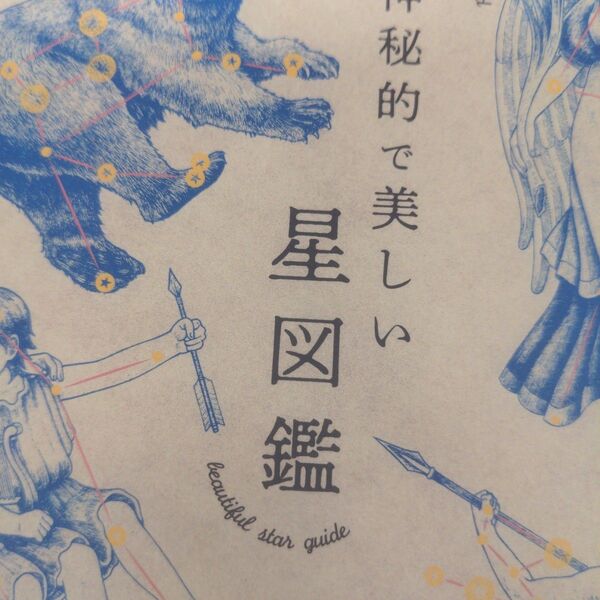 神秘的で美しい
星図鑑
beautiful star guide